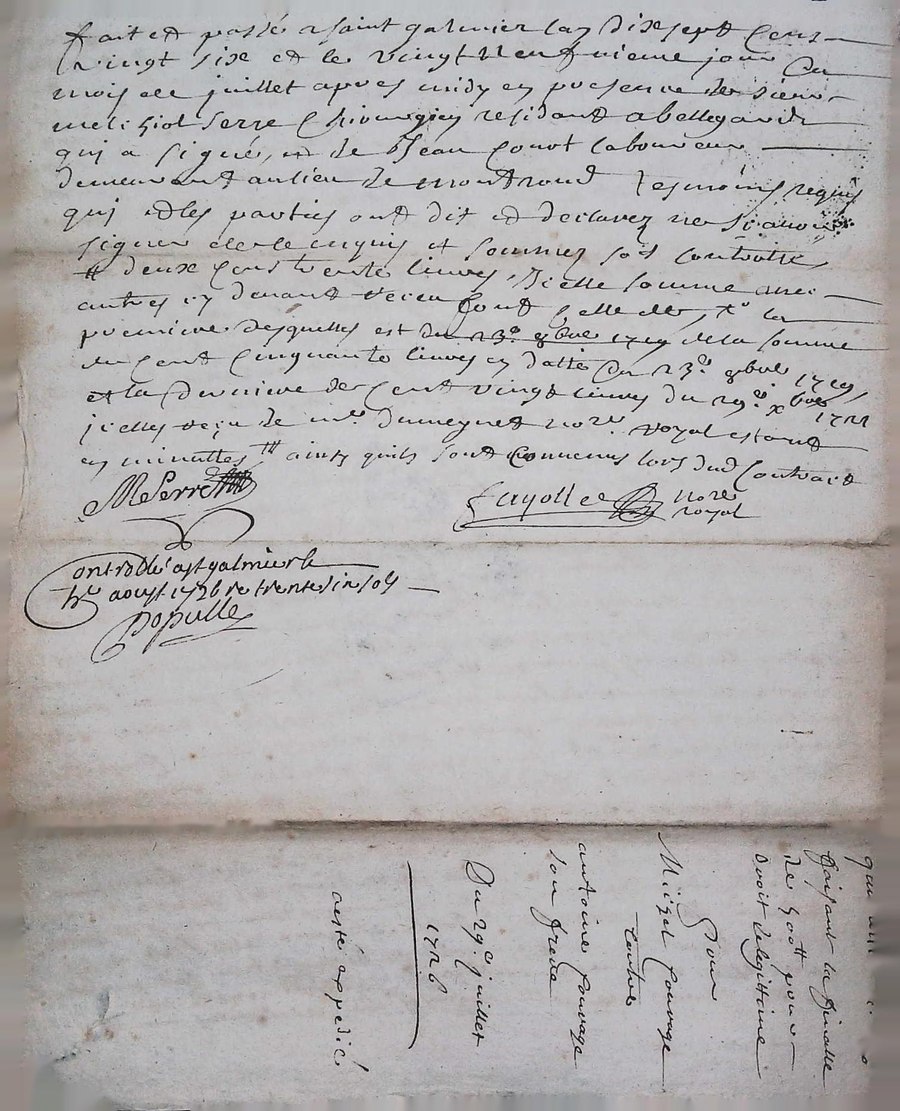 fait et passé a saint galmier lan dix sept cens
vingt six et le vingt neufvieme jour du
mois de juillet apres midy en presence de sieur
melchiol serre Chirurgien residant a bellegarde
qui a signé, et de Jean laboureur
demeurant au lieu de montrond tesmoins requis
qui et les parties ont dit et declarez ne scavoir
signer de ce enquis et sommez
deux cens trente livres, dicelle somme
autres cy devant receu sont la
premiere desquelles est du 23e 8bre 1719 de la somme
de cent cinquante livres en datte du 23e 8bre 1719
et la derniere de cent vingt livres du 29e xbre 1722
icelles reçu de me. dumeynet nore. royal estant
en minuttes ainsy quils sont convenus lors dud contract
MSerre
fayolle nore
royal
Controllé a st galmier le
aoust 1726 re trente six sols
Populle
faisant la finalle
de pour
droit de legitime
Pour
Michel Couvage
Contre
antoine Couvage
son frere
Du 29e juillet
1726
esté expedié